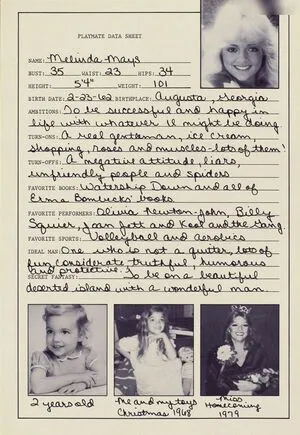 PLAYMATE DATA SHEET
NAME: Melinda Mays
BUST: 35 WAIST: 23 HIPS: 34
HEIGHT: 5'4" WEIGHT: 101
BIRTH DATE: 2-23-62 BIRTHPLACE: Augusta, Georgia
AMBITIONS: To be successful and happy in
life with whatever I might be doing
TURN-ONS: A real gentleman, ice cream,
shopping, roses and muscles-lots of them!
TURN-OFFS: A negative attitude, liars,
unfriendly people and spiders
FAVORITE BOOKS: Watership Down and all of
Erma Bombecks' books
FAVORITE PERFORMERS: Olivia Newton-John, Billy
Squier, Joan Jett and Kool and the Gang
FAVORITE SPORTS: Volleyball and Aerobics
IDEAL MAN: One who is not a quitter, lots of
fun, considerate, truthful, humorous
and protective.
SECRET FANTASY: To be on a beautiful
deserted island with a wonderful man
2 years old
Me and my toys
Christmas 1968
Miss
Homecoming
1979